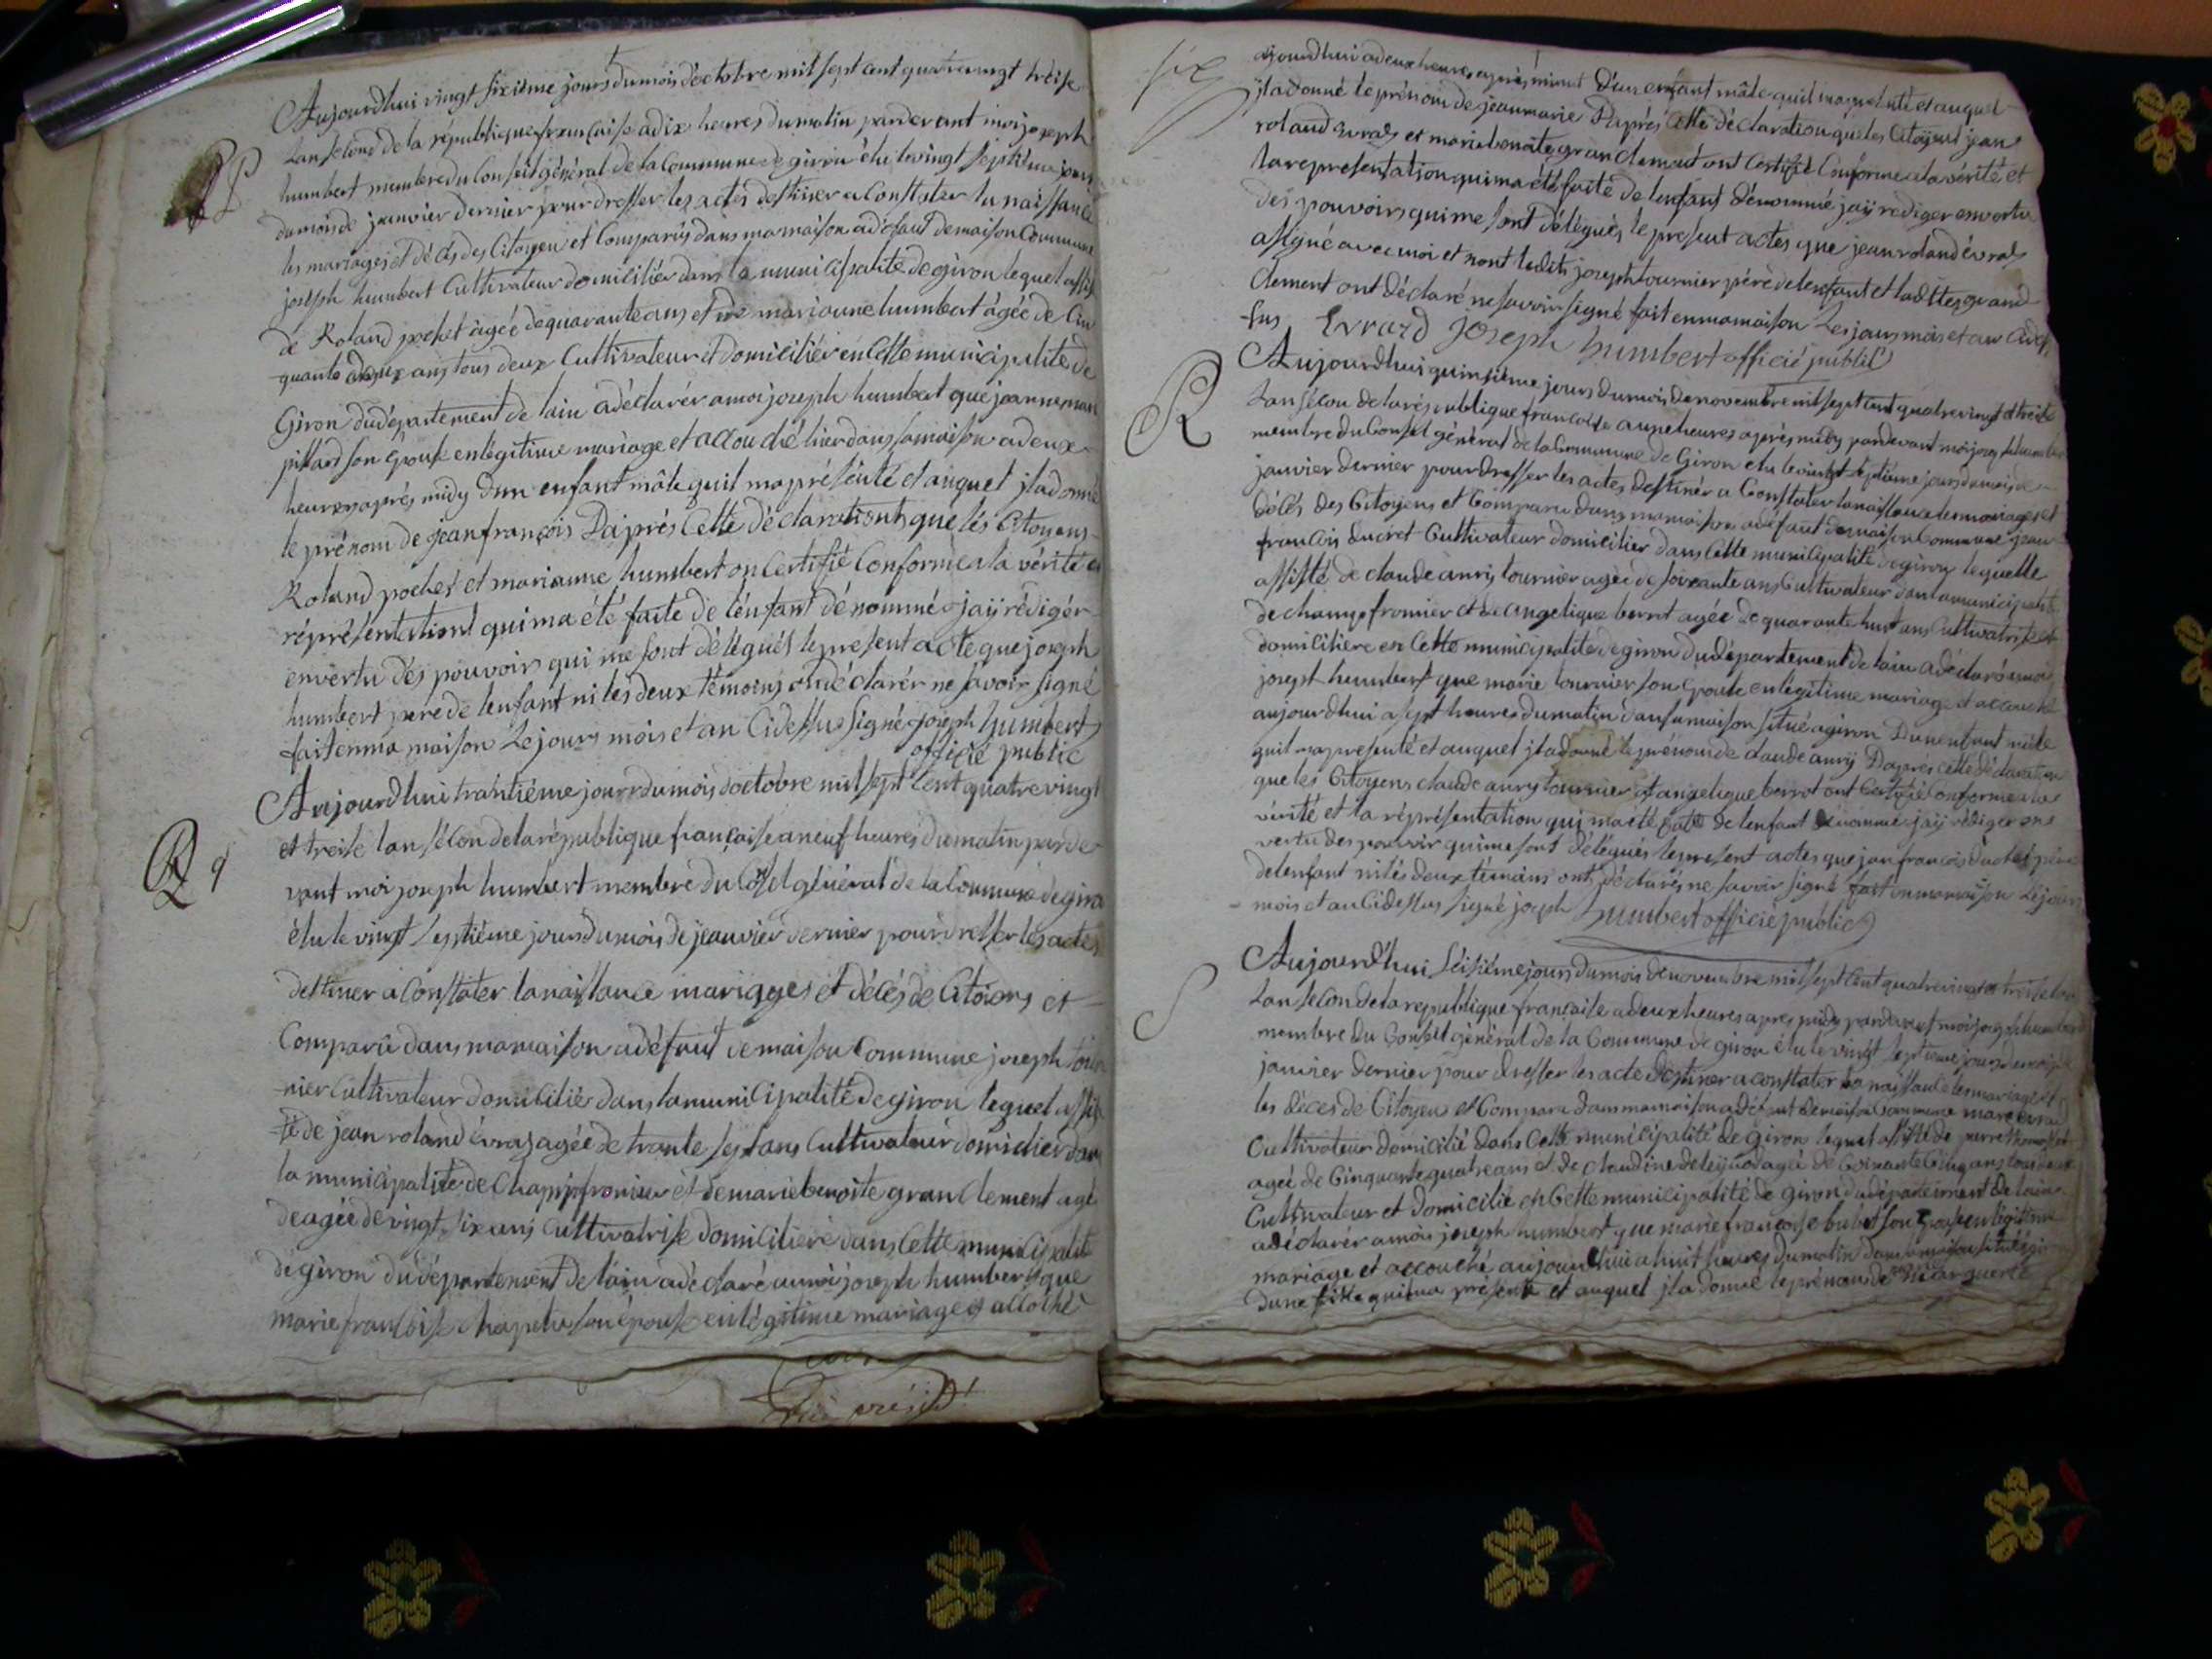 Aujourdhui vingt sixieme jours du mois doctobre mil sept cent quatrevingt treise
Lan second de la république française a dix heures du matin pardevant moi joseph
humbert membre du Conseil général de la Commune de giron élu le vingt septième jour
du mois de janvier dernier pour dresser les actes destiner a Constater la naissance
les mariages et décés des Citoyen et Comparû dans ma maison a défaut de maison Commune
joseph humbert Cultivateur domicilier dans la municipalité de giron lequel assisté
de Roland pochet âgée de quarante ans et de marianne humbert âgée de Cin
quante deux ans tous deux Cultivateur et domicilier en Cette municipalité de
Giron du département de lain a déclarér a moi joseph humbert que jeanne
pillard son épouse en légitime mariage et accouché hier dans sa maison a deux
heures après midy dun enfant mâle quil ma présenté et auquel jl a donné
le prénom de jean françois Daprès Cette déclarationt que les Citoyens
Roland pochet et marianne humbert on Certifié Conforme a la vérité et
réprésentationt qui ma été faite de lenfant dénommé jaÿ rédigér
en vertu dés pouvoirs qui me sont délégués le present acte que joseph
humbert pere de lenfant ni les deux témoins on déclarér ne sâvoir signé
fait en ma maison Le jours mois et an Cidessus Signé joseph humbert
officié public
Aujourdhui trantième jours du mois doctobre mil sept Cent quatre vingt
et treise lan sécon de la république française a neuf heures du matin parde
vant moi joseph humbert membre du Général de la Commune de giron
élu le vingt septième jours du mois de jeanvier dernier pour dresser les actes
destiner a Constater la naissance mariages et décés de Citoiens et
Comparû dans ma maison a défaut de maison Commune joseph tour
nier Cultivateur domicilié dans la municipalité de giron lequel assis
té de jean roland évraz agée de trante sept ans Cultivateur domicilier dans
la municipalité de Champfromier et de marie benoite grandclement agé
de agée de vingt six ans Cultivatrise domiciliere dans Cette municipalité
de giron du département de lain a déclaré a moi joseph humbert que
marie françoise Chapelu son épouse en légitime mariage et accôché
six
ajourdhui a deux heures après minuit Dun enfant mâle quil ma présenté et auquel
jl a donné le prénom de jean marie Daprés Cette déclaration que les Citoyens jean
roland evrad et marie benoite grandclement ont Certifié Conforme a la vérité et
la representation qui ma été faite de lenfant dénommé jaÿ rediger en vertu
des pouvoirs qui me sont délégués le present actes que jean roland évrad
a signé avec moi et nont ledits joseph tournier pére de lenfant et la ditte grand
clement ont déclaré ne savoir signé fait en ma maison Les jours mois et an Cides
sus Evrard joseph humbert officié public
Aujourdhui quinsième jours du mois de novembre mil sept cent quatrevingt et treise
Lan sécon de la république française a une heures après midy pardevant moi joseph humbert
membre du Conseil général de la Commune de Giron elu le vingt séptieme jours du mois de
janvier dernier pour dresser les actes destinér a Constater la naissance les mariages et
décés des Citoyens et Comparu dans ma maison a défaut de maison Commune jean
françois ducret Cultivateur domicilier dans Cette municipalité de giron lequelle
assisté de claude anrÿ tournier agée de soixante ans Cultivateur dans la municipalité
de champfromier et de angelique berrot agée de quarante huit ans Cultivatrise et
domiciliere en Cette municipalité de giron du département de lain a déclaré a moi
joseph humbert que marie tournier son épouse en légitime mariage et accouché
aujourdhui a sept heures du matin dans sa maison situé a giron Dun enfant mâle
quil ma presenté et auquel jl a donné le prénom de claude anrÿ Daprès cette déclaration
que les Citoyens claude anry tournier et angelique berrot ont Certifié Conforme a la
vérité et la réprésentation qui ma été faitte de lenfant dénommé jaÿ rédiger en
vertu des pouvoir qui me sont délégués le present actes que jean françois ducret pére
de lenfant ni lés deux témoins ont déclarés ne savoir signé fait en ma maison Le jours
mois et an Cidessus signé joseph humbert officié public
Aujourdhui Séisième jours du mois de novembre mil sept Cent quatrevingt et treise
Lan sécon de la république française a deux heures apres midy pardevant moi joseph humbert
membre du Conseil général de la Commune de giron élu le vingt septieme jours du mois de
janvier dernier pour dresser les acte destiner a constater la naissance les mariages et
les déces de Citoyen et Comparu dans ma maison a défaut de maison Commune marc evrad
Cultivateur domicilié dans Cette municipalité de Giron lequel assisté de pierre
agée de Cinquante quatre ans et de claudine agée de soixante Cinq ans tous deux
Cultivateur et domicilié en Cette municipalité de giron du département de lain
a déclarér a moi joseph humbert que marie françoise bubet son épouse en légitime
mariage et accouché aujourdhui a huit heures du matin dans sa maison situé a gi
Dune fille qui ma présenté et auquel jl a donné le prénom de marguerite